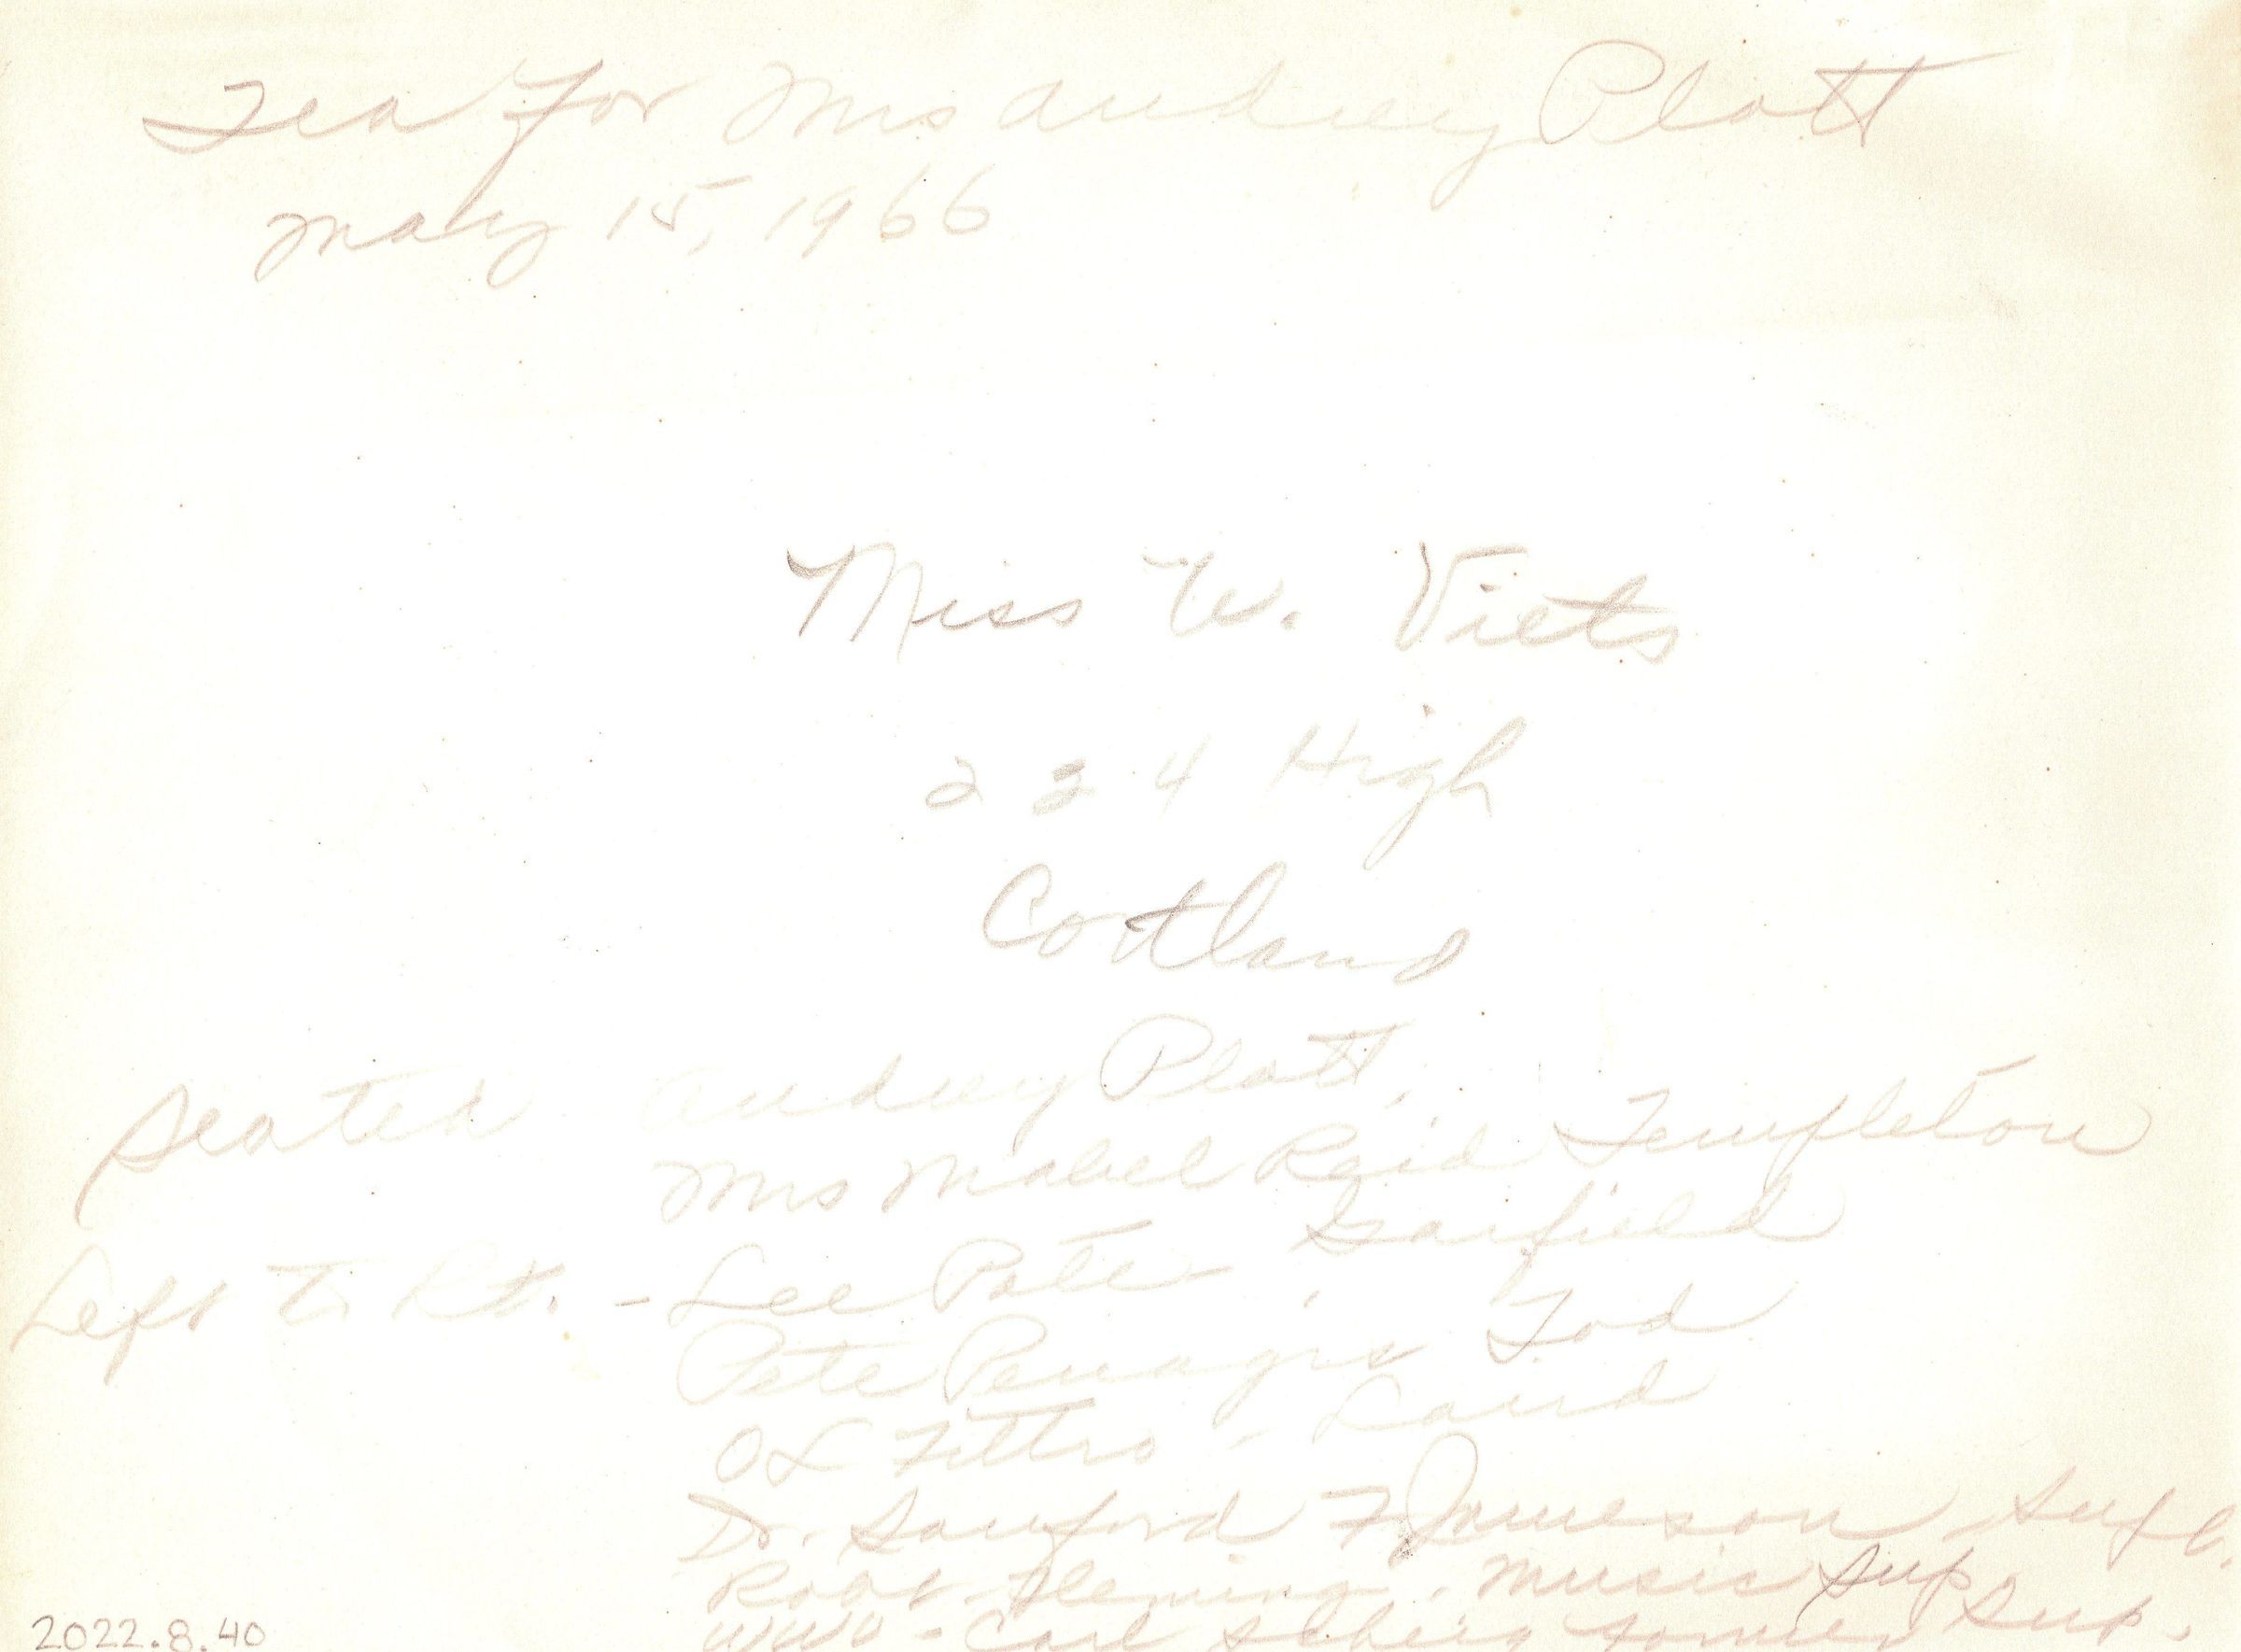 Tea For Mrs Audrey Plott
May 15, 1966
Miss W. Viets
224 High
Cortland
Seated Audrey Plott,
Mrs Mabel Reid Templeton
Left to Rt. - Lee Pate - Garfield
Pete Penagis Tod
OL Fettro - Laird
Dr. Sanford F Jameson - Supt.
Robt Fleming, Music Sup.
- Carl former Sup.
2022.8.40